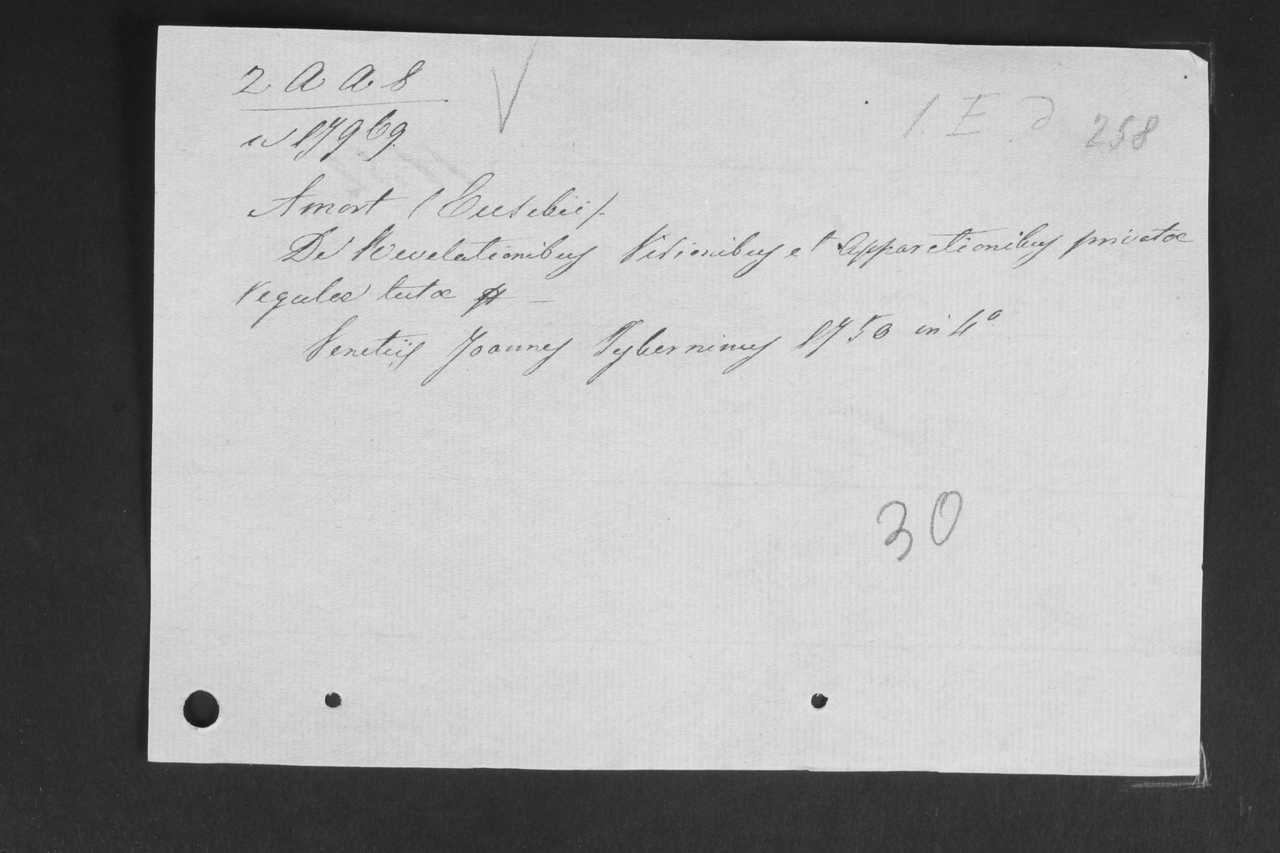 2 A A 8
1. E. d 258
w 17969.
Amort (Eusebii).
De Revelationibus Visionibus et Apparetionibus privatæ
Regulæ tutæ
Venetiis Joannes Tyberninus 1750 in 4º
30